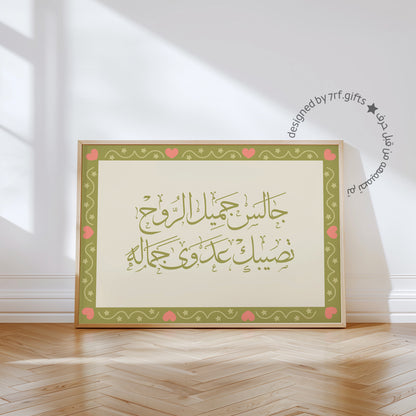 جالس جميل الروح
تصيبك عدوى جماله
designed by 7rf.gifts
تم تصميمه من قبل حرف